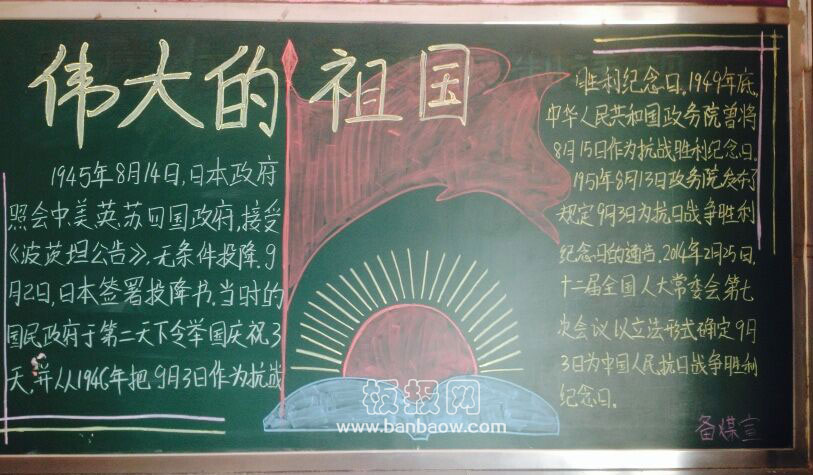 伟大的祖国
1945年8月14日,日本政府
照会中、美、英、苏四国政府,接受
《波茨坦公告》,无条件投降。9
月2日,日本签署投降书。当时的
国民政府于第二天下令举国庆祝3
天,并从1946年把9月3日作为抗战
胜利纪念日。1949年底,
中华人民共和国政务院曾将
8月15日作为抗战胜利纪念日。
1951年8月13日政务院发布了
规定9月3日为抗日战争胜利
纪念日的通告。2014年2月25日,
十二届全国人大常委会第七
次会议以立法形式确定9月
3日为中国人民抗日战争胜利
纪念日。
备煤宣
板报网
www.banbaow.com